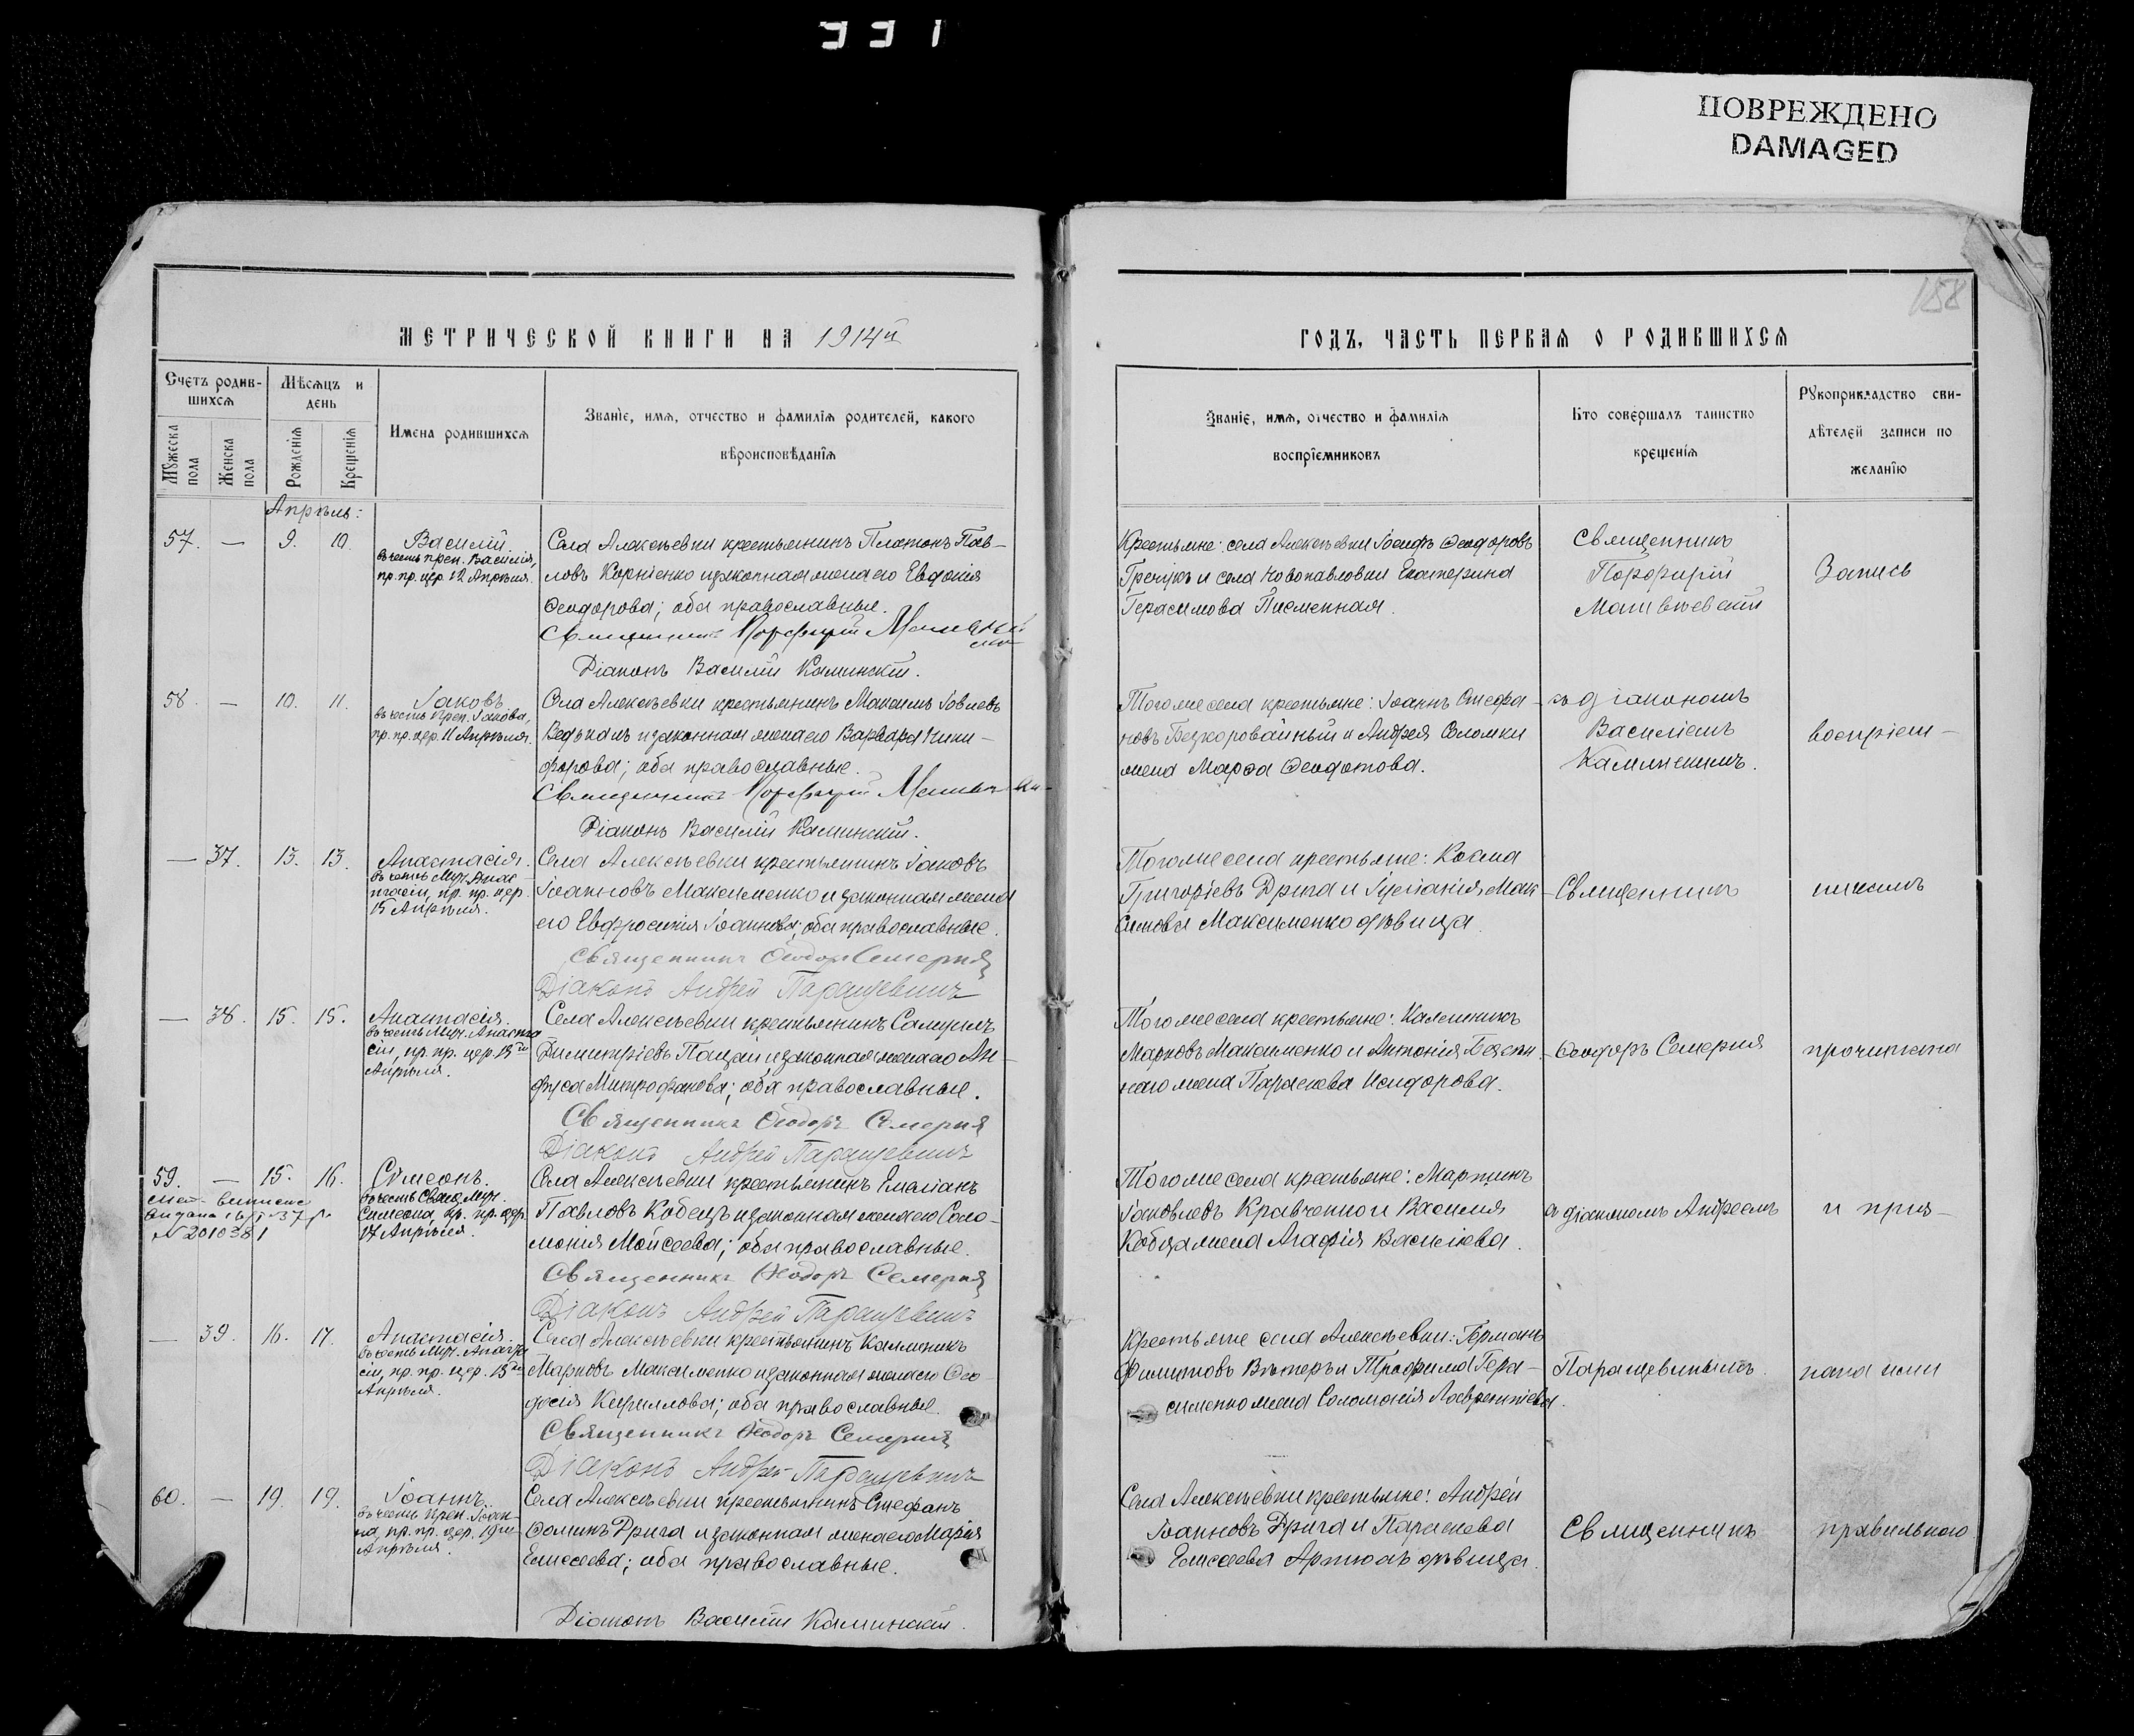 331
ПОВРЕЖДЕНО
DAMAGED
158
МЕТРИЧЕСКОЙ КНИГИ НА 1914й
ГОДЪ, ЧАСТЬ ПЕРВАЯ О РОДИВШИХСЯ
Счетъ родив-
шихся
Мѣсяцъ и
день
Мужеска пола
Женска пола
Рожденія
Крещенія
Имена родившихся
Званіе, имя, отчество и фамилія родителей, какого
вѣроисповѣданія
Званіе, имя, отчество и фамилія
воспріемниковъ
Кто совершалъ таинство
крещенія
Рукоприкладство сви-
дѣтелей записи по
желанію
Апрѣль:
57. — 9. 10.
Василій
въ честь преп. Василія,
пр. пр. цер. 12 Апрѣля.
Села Алексѣевки крестьянинъ Платонъ Пав-
ловъ Корніенко и законная жена его Евдокія
Ѳеодорова; оба православные.
Священникъ Порфирій
Діаконъ Василій Калинскій.
Крестьяне: села Алексѣевки Іосифъ Ѳеодоровъ
и села Новопавловки Екатерина
Герасимова Писменная.
Священникъ
Порфирій
Запись
58. — 10. 11.
Іаковъ.
въ честь Преп. Іакова,
пр. пр. цер. 11 Апрѣля.
Села Алексѣевки крестьянинъ Максимъ Іовлевъ
и законная жена его Варвара Ники-
форова; оба православные.
Священникъ Порфирій
Діаконъ Василій Калинскій.
Того же села крестьяне: Іоаннъ Стефа-
новъ Безкоровайный и Андрея Соломки
жена Марѳа Ѳеодотова.
съ діакономъ
Василіемъ
Калинскимъ.
воспріем-
— 37. 13. 13.
Анастасія.
въ честь Муч. Анас-
тасіи, пр. пр. цер.
15 Апрѣля.
Села Алексѣевки крестьянинъ Іаковъ
Іоанновъ Максименко и законная жена
его Евфросинія Іоаннова; оба православные.
Священникъ Ѳеодоръ Семерня
Діаконъ Андрей Паращевинъ
Того же села крестьяне: Косма
Григоріевъ Дрига и Іуліанія Мак-
симова Максименко дѣвица.
Священникъ
никамъ
— 38. 15. 15.
Анастасія.
въ честь Муч. Анаста
сіи, пр. пр. цер. 15го
Апрѣля.
Села Алексѣевки крестьянинъ Самуилъ
Димитріевъ Пацай и законная жена его Ан-
фуса Митрофанова; оба православные.
Священникъ Ѳеодоръ Семерня
Діаконъ Андрей Паращевинъ
Того же села крестьяне: Калиникъ
Марковъ Максименко и Антонія
жена Параскева Исидорова.
Ѳеодоръ Семерня
прочитана
59. — 15. 16.
Сѵмеонъ.
въ честь Свящ. Муч.
Симеона пр. пр. цер.
17 Апрѣля.
№ 2010381
Села Алексѣевки крестьянинъ Емеліанъ
Павловъ Кобецъ и законная жена его Соло-
монія Мойсеева; оба православные.
Священникъ Ѳеодоръ Семерня
Діаконъ Андрей Паращевинъ
Того же села крестьяне: Мартинъ
Іаковлевъ Кравченко и Василія
Кобца жена Агафія Василіева.
съ діакономъ Андреемъ
и приз-
— 39. 16. 17.
Анастасія.
въ честь Муч. Анаста
сіи, пр. пр. цер. 15го
Апрѣля.
Села Алексѣевки крестьянинъ Калиникъ
Марковъ Максименко и законная жена его Ѳео-
досія Кириллова; оба православные.
Священникъ Ѳеодоръ Семерня
Діаконъ Андрей Паращевинъ
Крестьяне села Алексѣевки: Германъ
Филиповъ Вѣтеръ и Трофима Гера-
сименко жена Соломонія Лаврентіева.
Паращевинымъ.
нана ими
60. — 19. 19.
Іоаннъ.
въ честь Преп. Іоан-
на, пр. пр. цер. 19го
Апрѣля.
Села Алексѣевки крестьянинъ Стефанъ
Ѳоминъ Дрига и законная жена его Марія
Елисеева; оба православные.
Діаконъ Василій Калинскій.
Села Алексѣевки крестьяне: Андрей
Іоанновъ Дрига и Параскева
Елисеева Артюхъ дѣвица.
Священникъ
правильною